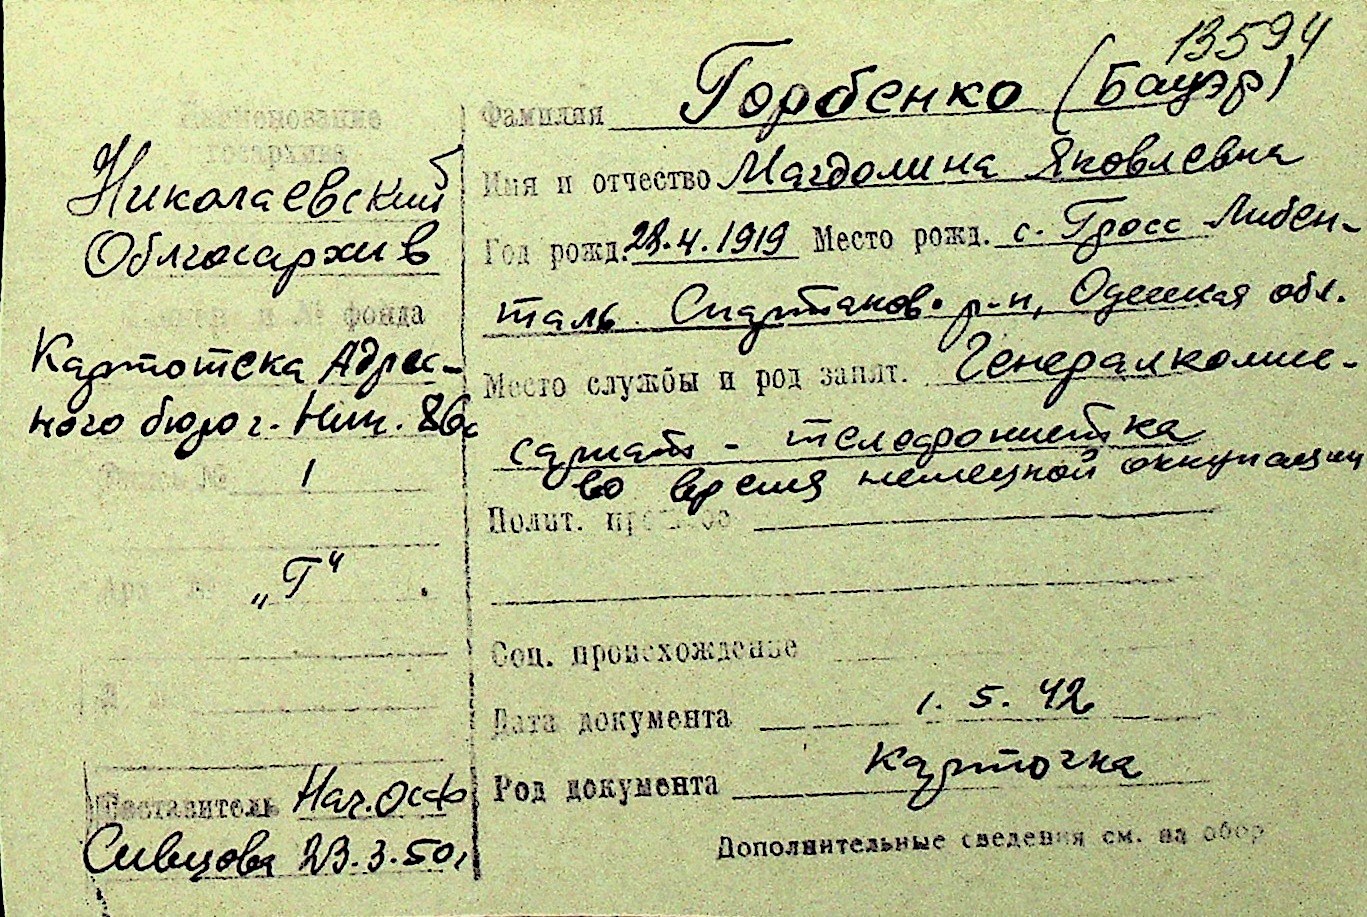 13594
Наименование
госархива
Николаевский
Облгосархив
и № фонда
Картотека Адрес-
ного бюро г. Ник.
1
„Г“
Составитель Нач. ОСФ
Сивцова 23.3.50г
Фамилия Горбенко (Бауэр)
Имя и отчество Магдолина Яковлевна
Год рожд. 28.4.1919 Место рожд. с. Гросс Либен-
таль Спартаков. р-н, Одесская обл.
Место службы и род занят. Генералкомис-
сариат - телефонистка
во время немецкой оккупации
Полит.
Соц. происхождение
Дата документа 1. 5. 42
Род документа карточка
Дополнительные сведения см. на обор